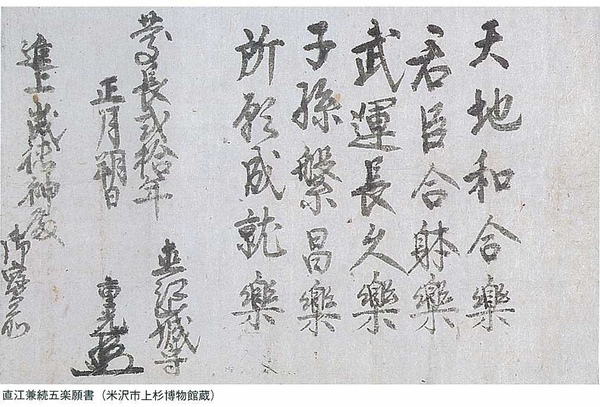 天地和合樂
君臣合躰樂
武運長久樂
子孫繁昌樂
所願成就樂
慶長弐拾年
正月朔日
直江城守
重光
進上歳徳神殿
御寳前
直江兼続五楽願書（米沢市上杉博物館蔵）